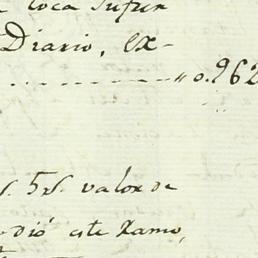 toca Sufrir
Diario, ex-
"0.962
5rs. valor de
dió este Ramo,